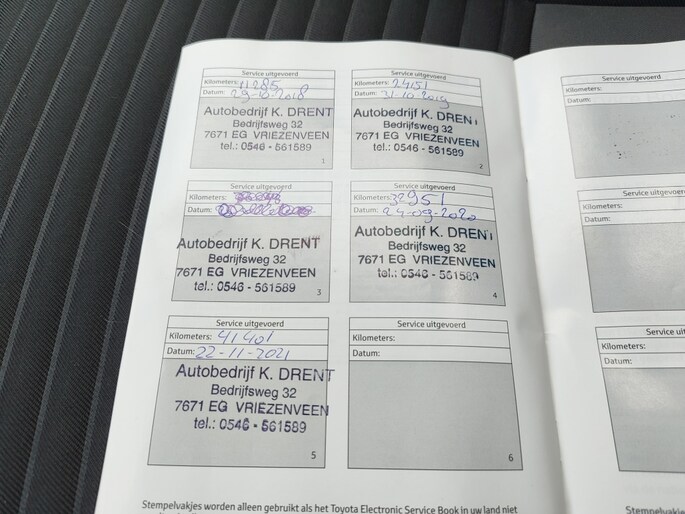 Service uitgevoerd
Kilometers: 11285
Datum: 2018
Autobedrijf K. DRENT
Bedrijfsweg 32
7671 EG VRIEZENVEEN
tel.: 0546 - 561589
1
Service uitgevoerd
Kilometers: 24151
Datum: 31-10-2019
Autobedrijf K. DREN
Bedrijfsweg 32
7671 EG VRIEZENVEEN
tel.: 0546 - 561589
2
Service uitgevoerd
Kilometers:
Datum:
Autobedrijf K. DRENT
Bedrijfsweg 32
7671 EG VRIEZENVEEN
tel.: 0546 - 561589
3
Service uitgevoerd
Kilometers: 32951
Datum: 24-09-2020
Autobedrijf K. DREN
Bedrijfsweg 32
7671 EG VRIEZENVEEN
tel.: 0546 - 561589
4
Service uitgevoerd
Kilometers: 41401
Datum: 22-11-2021
Autobedrijf K. DRENT
Bedrijfsweg 32
7671 EG VRIEZENVEEN
tel.: 0546 - 561589
5
Service uitgevoerd
Kilometers:
Datum:
6
Stempelvakjes worden alleen gebruikt als het Toyota Electronic Service Book in uw land niet
Service uitgevoerd
Kilometers:
Datum:
Service uitgevoerd
Kilometers:
Datum:
Service
Kilometers:
Datum: